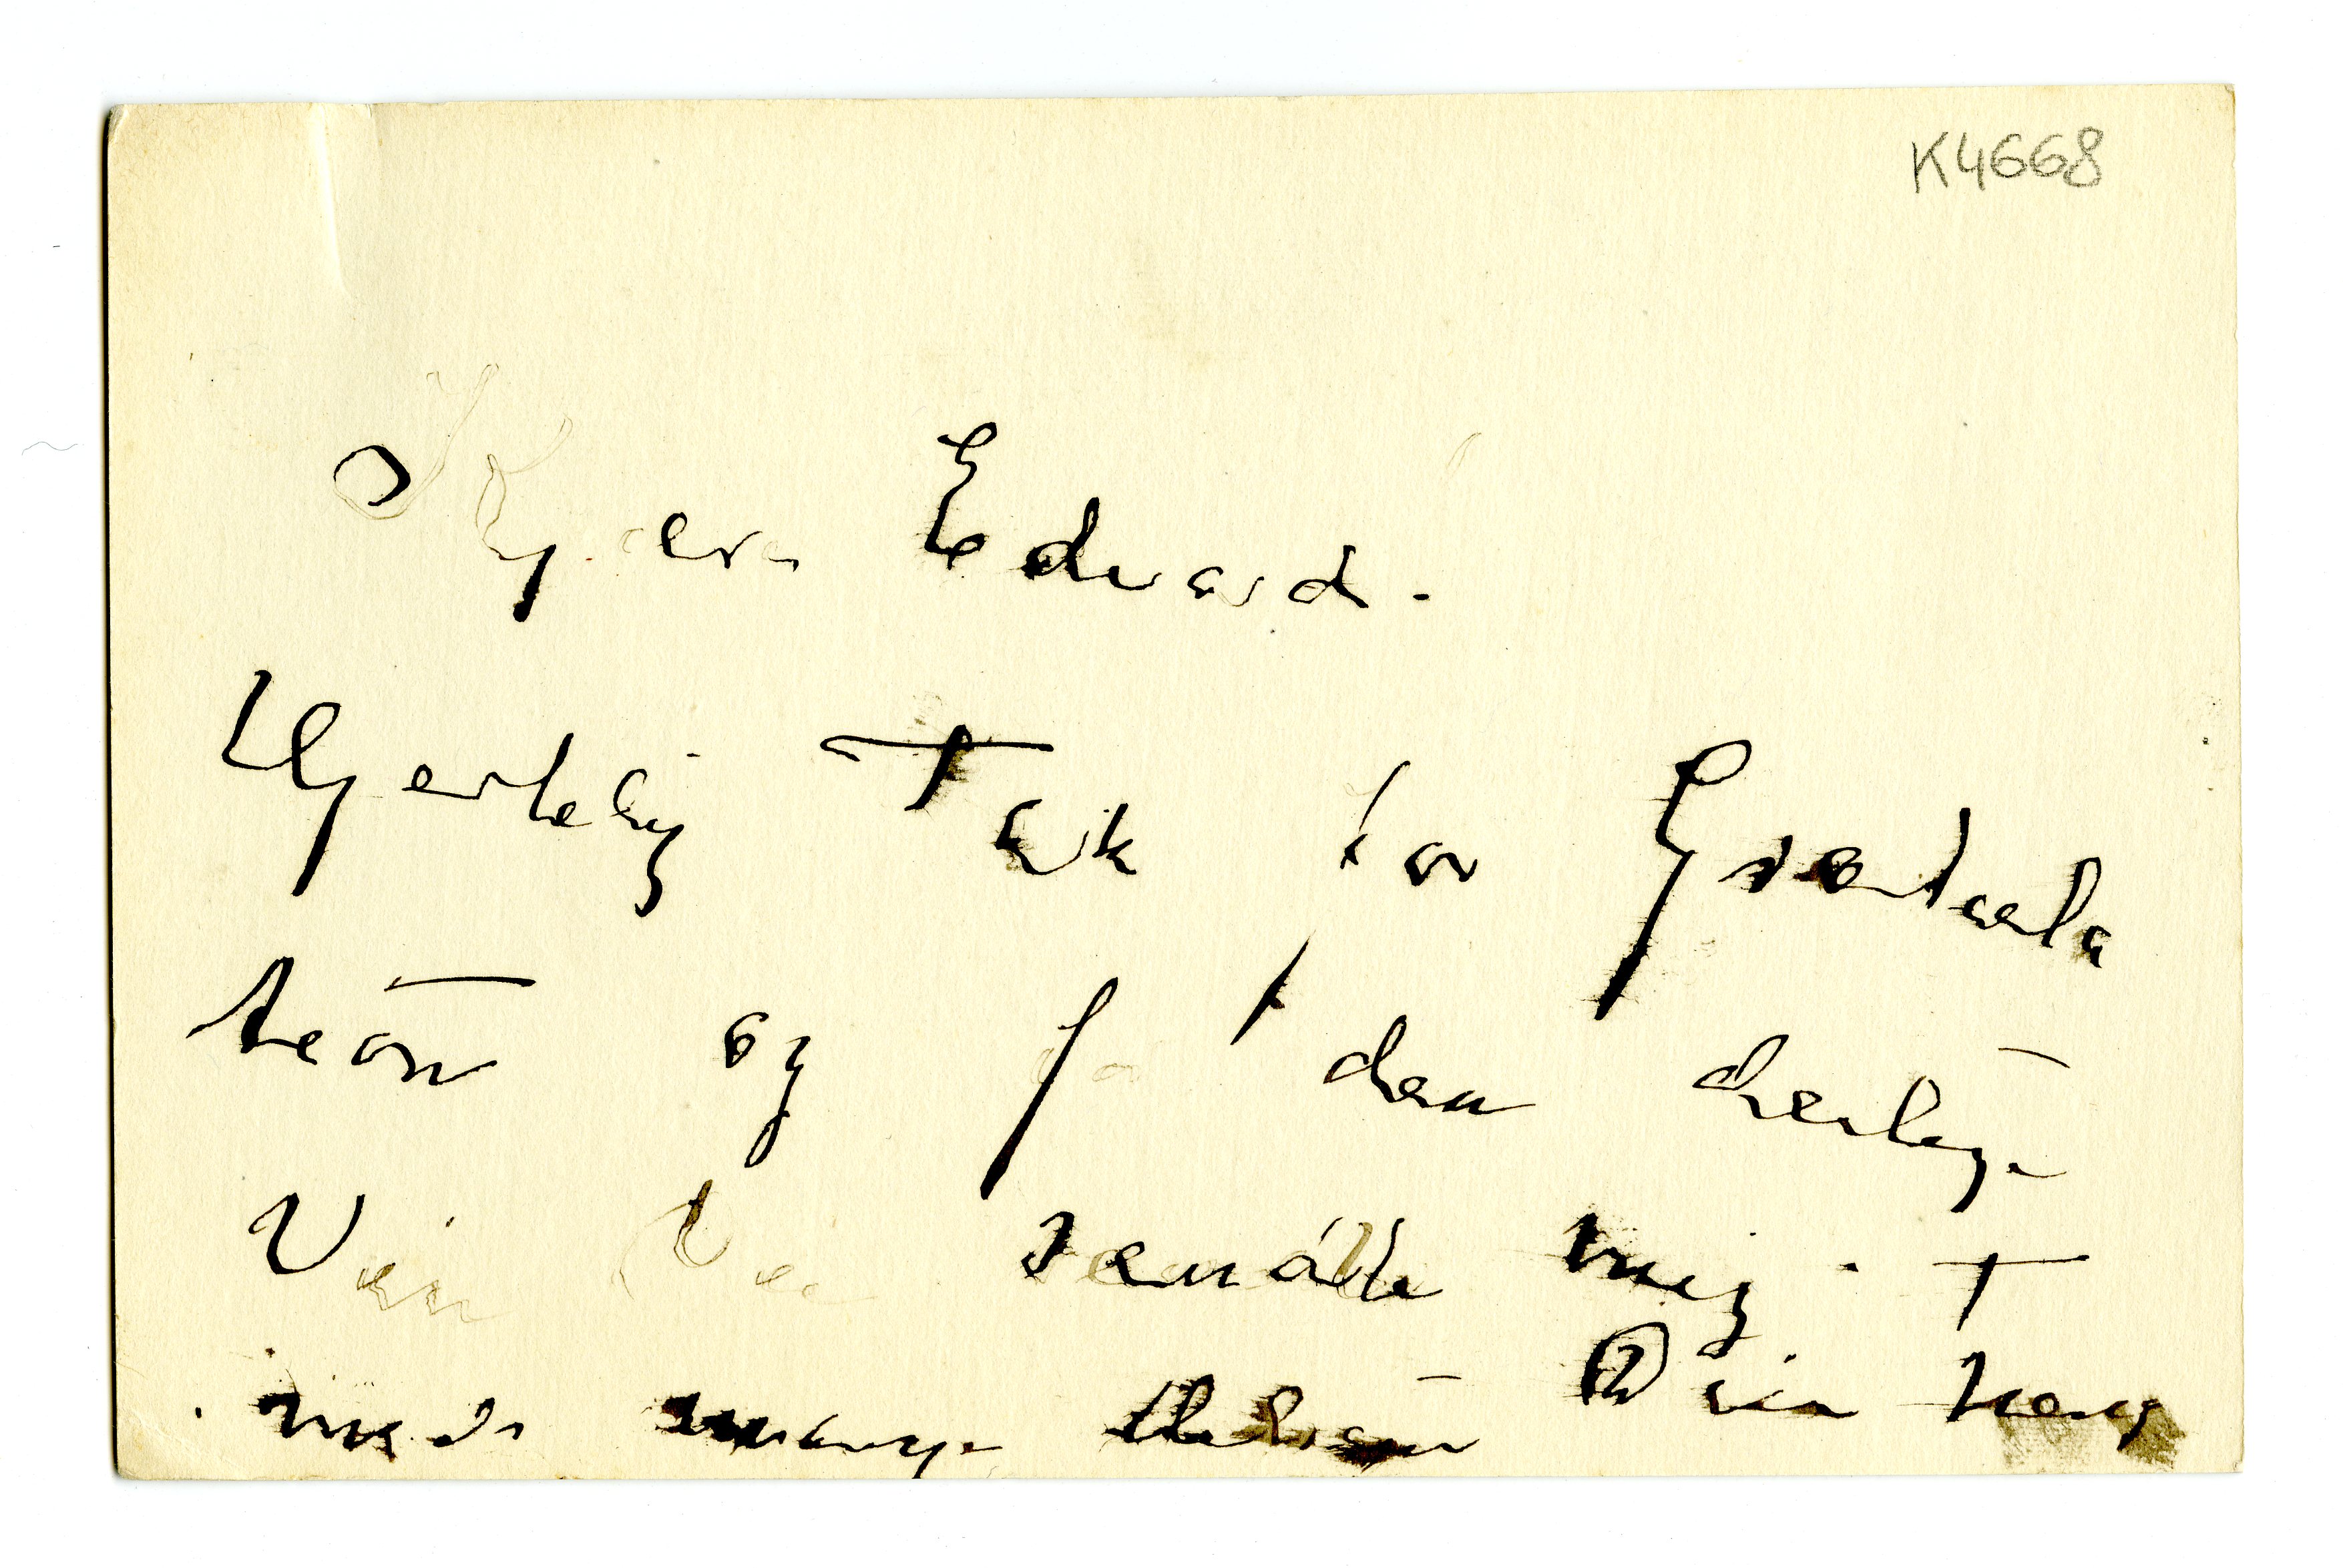 K4668
Kjære Edvard.
Hjertelig Tak for Gratula
tion og for den deilige
Vin Du sendte mig.
med mange Hilsen Din